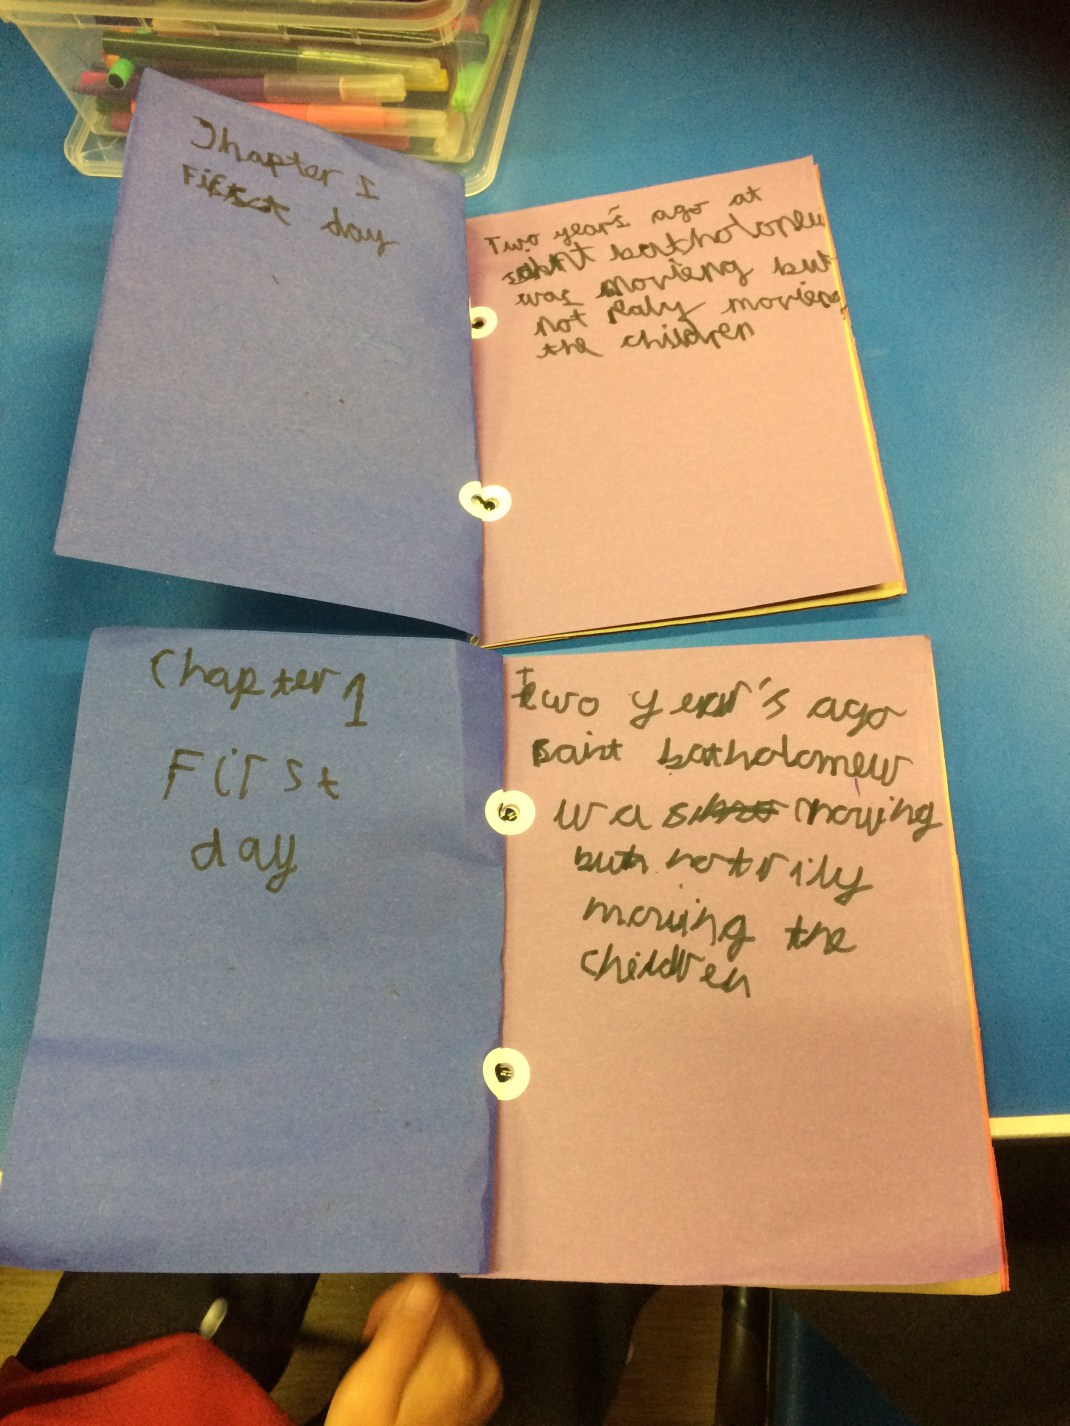 Chapter 1
First day
Two year's ago at
saint batholomew
was movieng but
not realy movieng
the children
Chapter 1
First
day
two year's ago
saint batholomew
was moving
but not rily
moving the
children